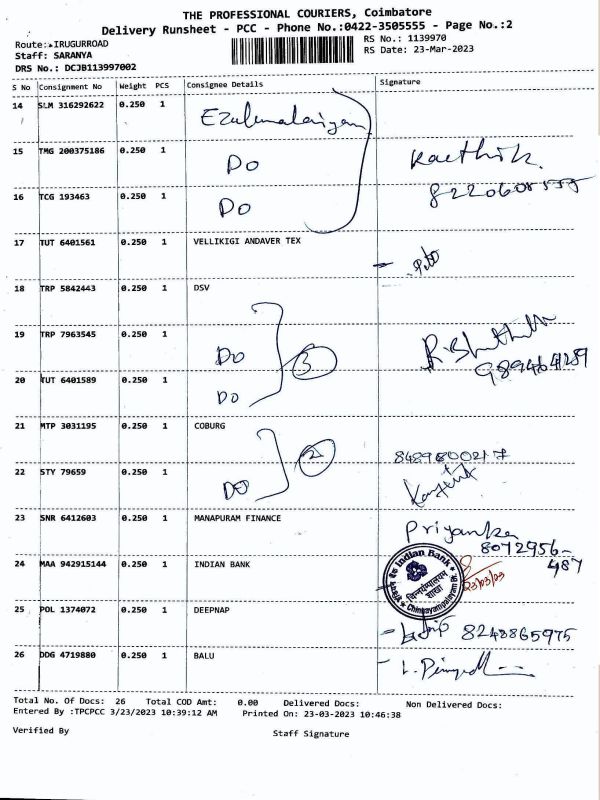 THE PROFESSIONAL COURIERS, Coimbatore
Delivery Runsheet - PCC - Phone No.:0422-3505555 - Page No.:2
Route: IRUGURROAD
RS No.: 1139970
Staff: SARANYA
RS Date: 23-Mar-2023
DRS No.: DCJB113997002
S No Consignment No Weight PCS Consignee Details Signature
14 SLM 316292622 0.250 1
15 TMG 200375186 0.250 1 DO Kaethik.
16 TCG 193463 0.250 1 DO
17 TUT 6401561 0.250 1 VELLIKIGI ANDAVER TEX
18 TRP 5842443 0.250 1 DSV
19 TRP 7963545 0.250 1 DO
20 TUT 6401589 0.250 1 DO 3
21 MTP 3031195 0.250 1 COBURG 8489800217
22 STY 79659 0.250 1 DO 2
23 SNR 6412603 0.250 1 MANAPURAM FINANCE Priyanka
8072956-
487
24 MAA 942915144 0.250 1 INDIAN BANK
Indian Bank
शाखा
23/03/23
25 POL 1374072 0.250 1 DEEPNAP 8248865975
26 DDG 4719880 0.250 1 BALU
Total No. Of Docs: 26 Total COD Amt: 0.00 Delivered Docs: Non Delivered Docs:
Entered By :TPCPCC 3/23/2023 10:39:12 AM Printed On: 23-03-2023 10:46:38
Verified By Staff Signature